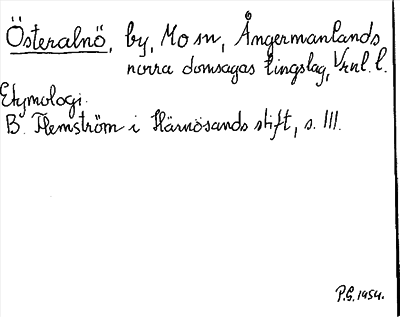 Österalnö, by, Mo sn, Ångermanlands
norra domsagas tingslag, Vrnl. l.
Etymologi.
B. Flemström i Härnösands stift, s. 111.
P.G. 1954.